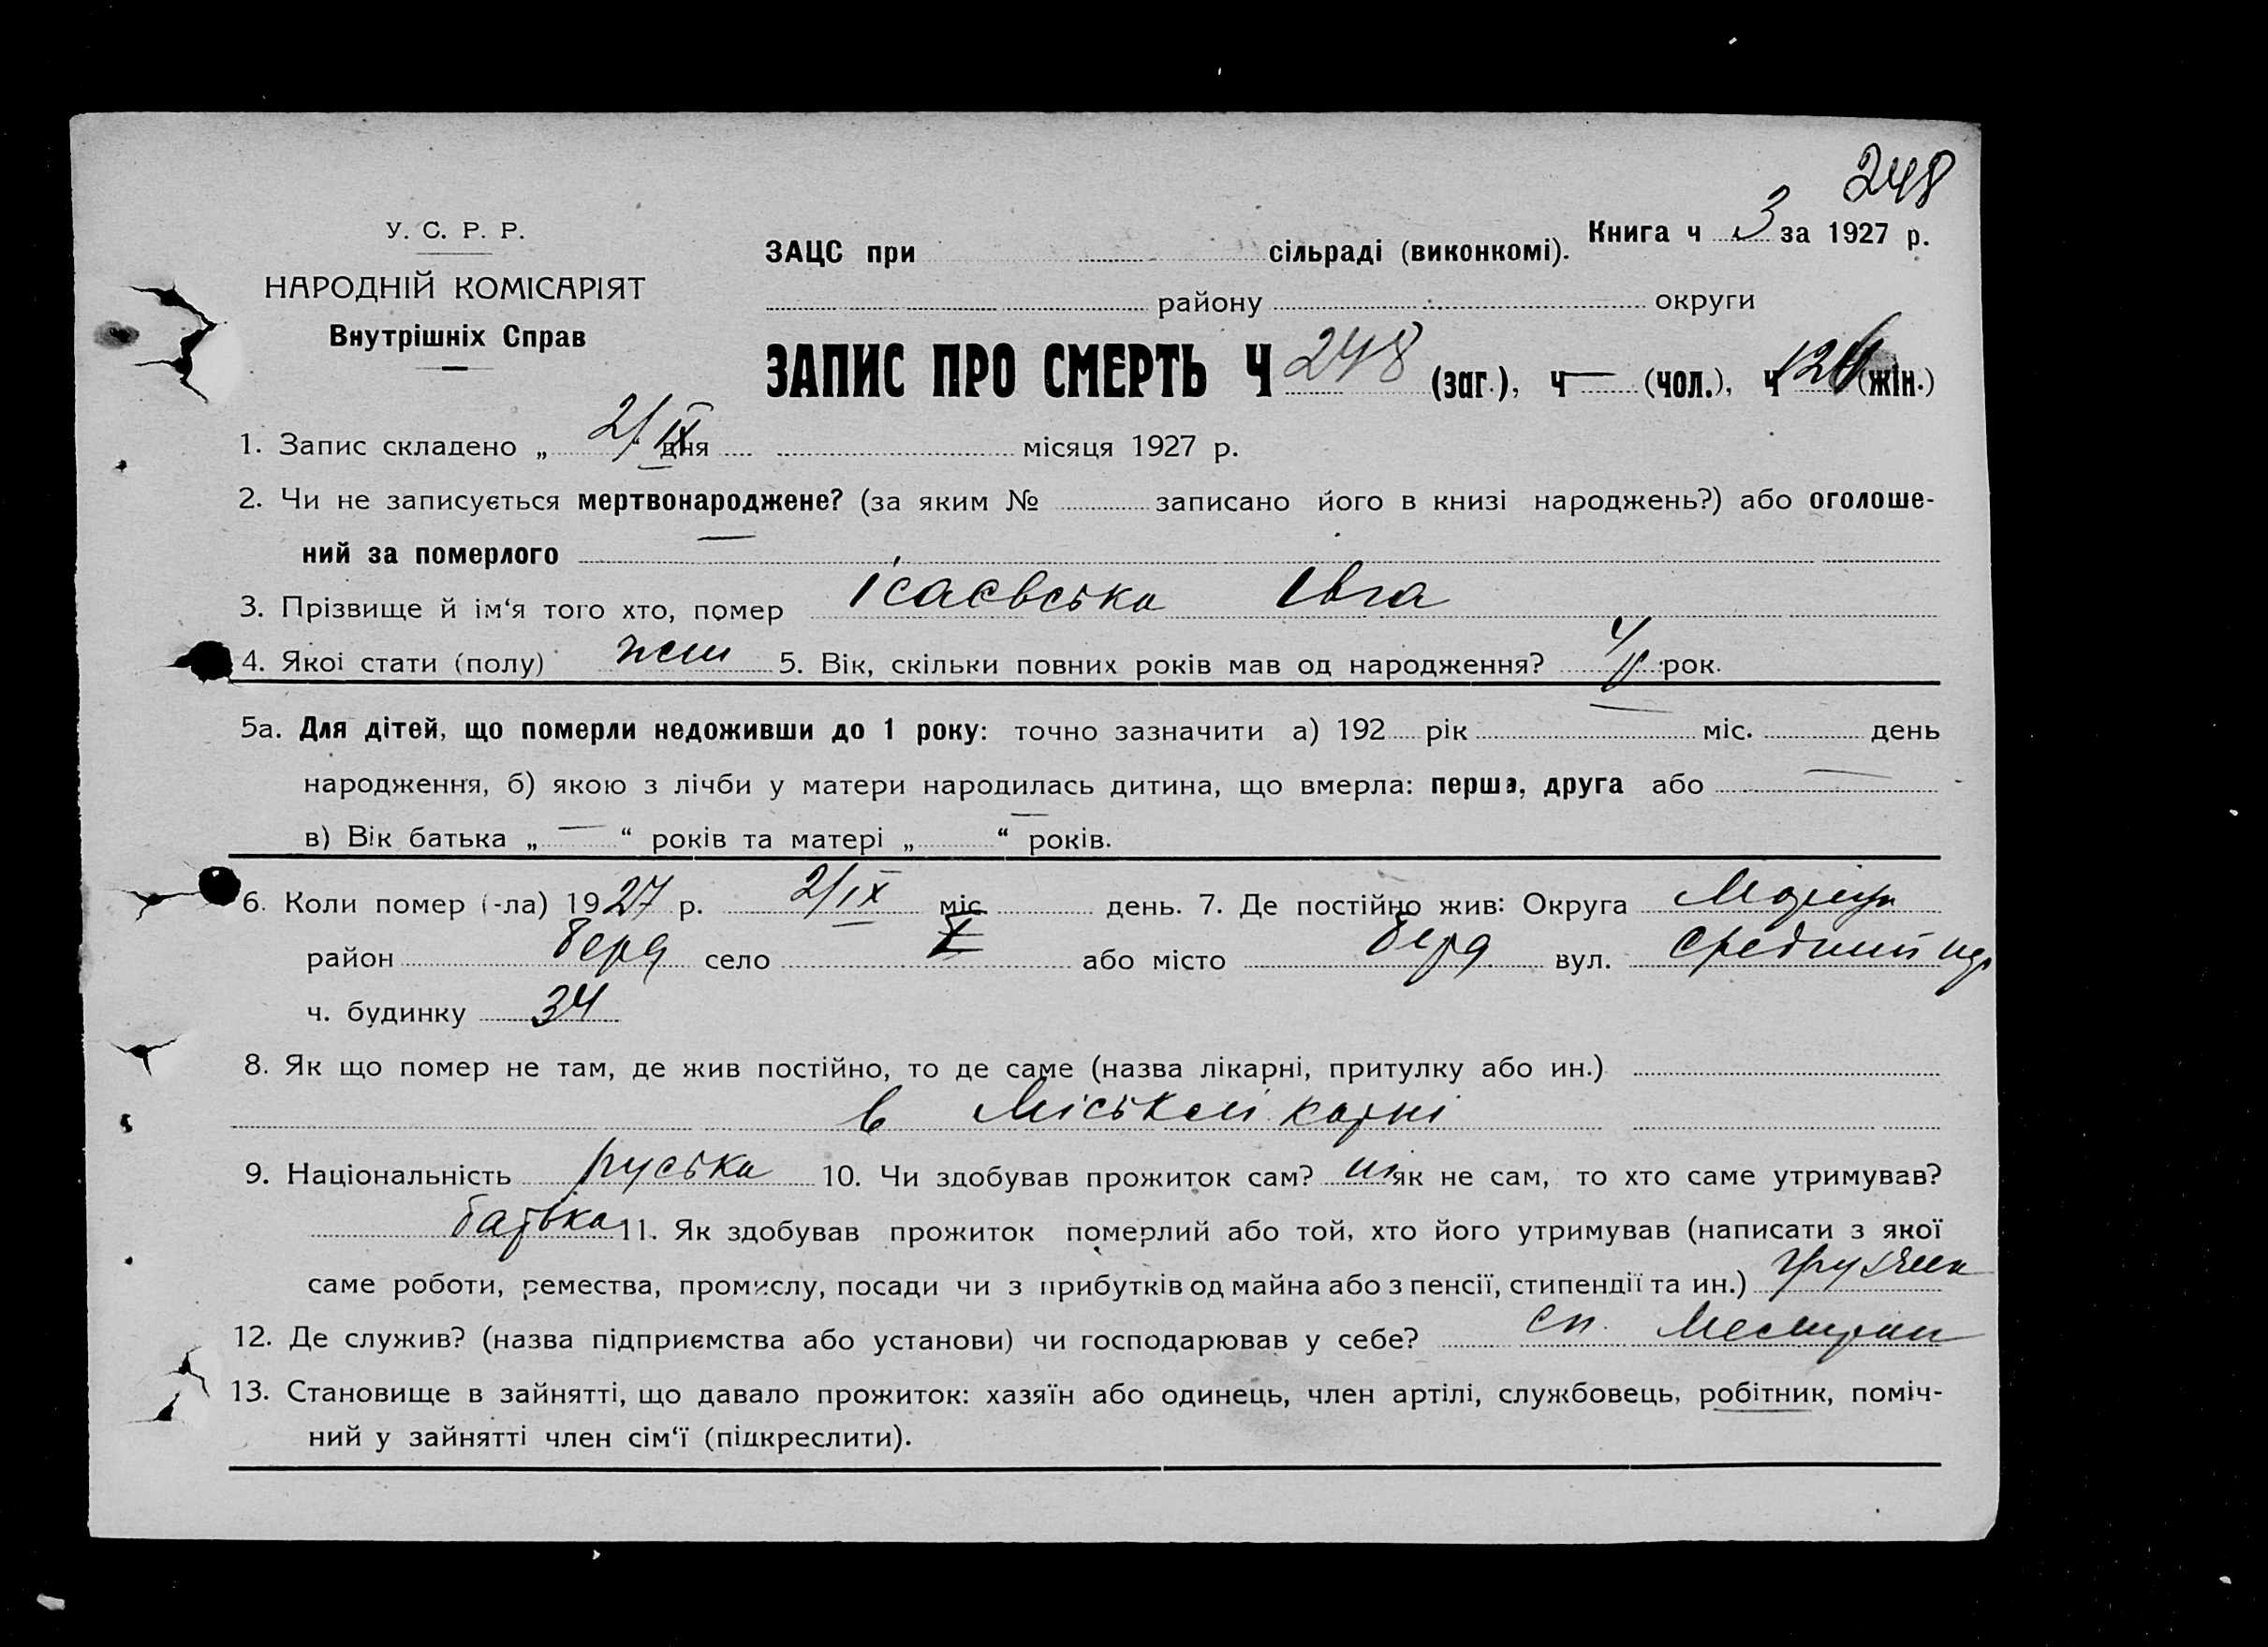 248
У. С. Р. Р.
НАРОДНІЙ КОМІСАРІЯТ
Внутрішніх Справ
Книга ч 3 за 1927 р.
ЗАЦС при сільраді (виконкомі).
району округи
ЗАПИС ПРО СМЕРТЬ Ч 248 (заг.), ч — (чол.), ч (жін.)
1. Запис складено „ 2/IX “ дня місяця 1927 р.
2. Чи не записується мертвонароджене? (за яким № записано його в книзі народжень?) або оголоше-
ний за померлого —
3. Прізвище й ім‘я того хто, помер Ісаєвська Івга
4. Якої стати (полу) жін 5. Вік, скільки повних років мав од народження? рок.
5а. Для дітей, що померли недоживши до 1 року: точно зазначити а) 192 рік — міс. день
народження, б) якою з лічби у матери народилась дитина, що вмерла: перша, друга або —
в) Вік батька „ — “ років та матері „ — “ років.
6. Коли помер (-ла) 1927 р. 2/IX міс день. 7. Де постійно жив: Округа Маріуп
район Берд село або місто Берд вул. Средний
ч. будинку 34
8. Як що помер не там, де жив постійно, то де саме (назва лікарні, притулку або ин.)
в Міській
9. Національність руська 10. Чи здобував прожиток сам? ні як не сам, то хто саме утримував?
батько 11. Як здобував прожиток померлий або той, хто його утримував (написати з якої
саме роботи, ремества, промислу, посади чи з прибутків од майна або з пенсії, стипендії та ин.) грузчик
12. Де служив? (назва підприємства або установи) чи господарював у себе? сп.
13. Становище в зайнятті, що давало прожиток: хазяїн або одинець, член артілі, службовець, робітник, поміч-
ний у зайнятті член сім‘ї (підкреслити).